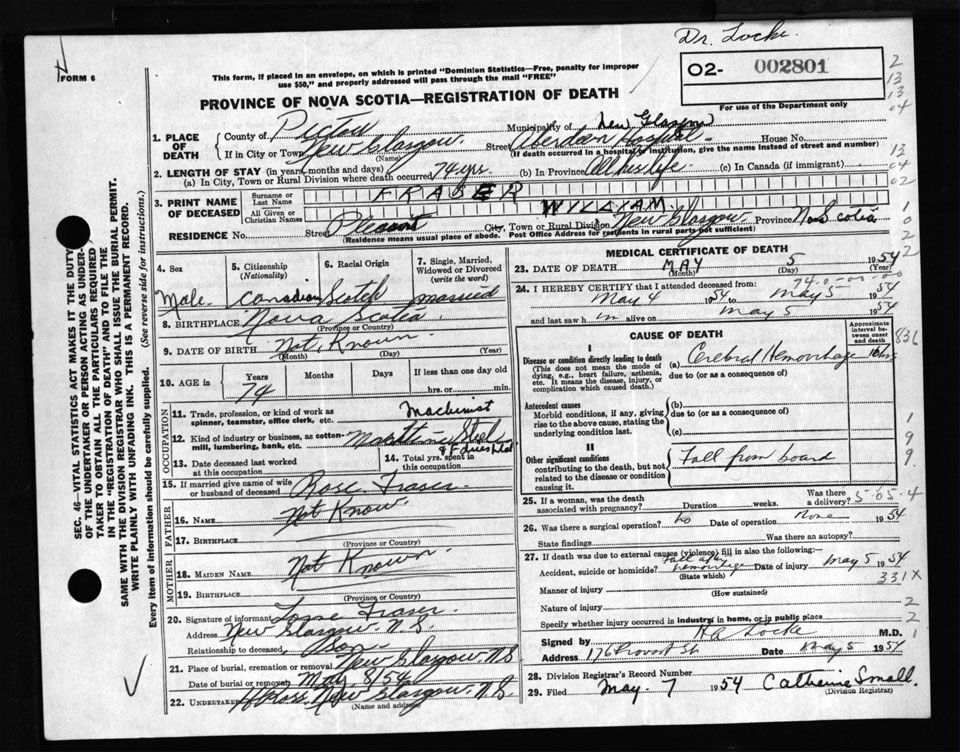 Dr. Locke.
FORM 6
This form, if placed in an envelope, on which is printed "Dominion Statistics—Free, penalty for improper
use $50," and properly addressed will pass through the mail "FREE"
O2- 002801
For use of the Department only
PROVINCE OF NOVA SCOTIA—REGISTRATION OF DEATH
1. PLACE OF DEATH
County of Pictou Municipality of New Glasgow
If in City or Town New Glasgow. Street Aberdeen Hospital. House No.
(Name) (If death occurred in a hospital or institution, give the name instead of street and number)
2. LENGTH OF STAY (in years, months and days)
(a) In City, Town or Rural Division where death occurred 74 yrs. (b) In Province All his life. (c) In Canada (if immigrant)
3. PRINT NAME OF DECEASED
Surname or Last Name FRASER
All Given or Christian Names WILLIAM
RESIDENCE No. Street Pleasant City, Town or Rural Division New Glasgow Province N. Scotia
(Residence means usual place of abode. Post Office Address for residents in rural parts not sufficient)
4. Sex Male.
5. Citizenship (Nationality) Canadian
6. Racial Origin Scotch
7. Single, Married, Widowed or Divorced (write the word) married
8. BIRTHPLACE Nova Scotia.
(Province or Country)
9. DATE OF BIRTH Not Known
(Month) (Day) (Year)
10. AGE in Years 74 Months Days If less than one day old
hrs. or min.
OCCUPATION
11. Trade, profession, or kind of work as spinner, teamster, office clerk, etc. Machinist
12. Kind of industry or business, as cotton-mill, lumbering, bank, etc. Maritime Steel
13. Date deceased last worked at this occupation
14. Total yrs. spent in this occupation
15. If married give name of wife or husband of deceased Rose Fraser.
FATHER
16. Name Not Know
17. Birthplace
(Province or Country)
MOTHER
18. Maiden Name Not Known.
19. Birthplace
(Province or Country)
20. Signature of informant Fraser.
Address New Glasgow. N.S.
Relationship to deceased Son.
21. Place of burial, cremation or removal New Glasgow. N.S
Date of burial or removal May 8/54
22. Undertaker New Glasgow. N.S.
(Name and address)
SEC. 46—VITAL STATISTICS ACT MAKES IT THE DUTY
OF THE UNDERTAKER OR PERSON ACTING AS UNDER-
TAKER TO OBTAIN ALL THE PARTICULARS REQUIRED
IN THE "REGISTRATION OF DEATH" AND TO FILE THE
SAME WITH THE DIVISION REGISTRAR WHO SHALL ISSUE THE BURIAL PERMIT.
WRITE PLAINLY WITH UNFADING INK. THIS IS A PERMANENT RECORD.
Every item of information should be carefully supplied. (See reverse side for instructions.)
MEDICAL CERTIFICATE OF DEATH
23. DATE OF DEATH MAY 5 1954
(Month) (Day) (Year)
24. I HEREBY CERTIFY that I attended deceased from:
May 4 1954 to May 5 1954
and last saw h im alive on May 5 1954
CAUSE OF DEATH
Approximate interval between onset and death
I
Disease or condition directly leading to death
(This does not mean the mode of dying, e.g., heart failure, asthenia, etc. It means the disease, injury, or complication which caused death.)
(a) Cerebral Hemorrhage 16 hrs
due to (or as a consequence of)
Antecedent causes
Morbid conditions, if any, giving rise to the above cause, stating the underlying condition last.
(b)
due to (or as a consequence of)
(c)
II
Other significant conditions
contributing to the death, but not related to the disease or condition causing it.
Fall from board
25. If a woman, was the death associated with pregnancy? Duration weeks. Was there a delivery?
5.05.4
26. Was there a surgical operation? no Date of operation none 1954
State findings Was there an autopsy?
27. If death was due to external causes (violence) fill in also the following:
Accident, suicide or homicide? Fall after hemorrhage Date of injury May 5 1954
(State which)
331X
Manner of injury
(How sustained)
Nature of injury
Specify whether injury occurred in industry, in home, or in public place
Signed by Locke M.D.
Address 176 Provost St. Date May 5 1954
28. Division Registrar's Record Number
29. Filed May. 7 1954 Catherine Small.
(Division Registrar)